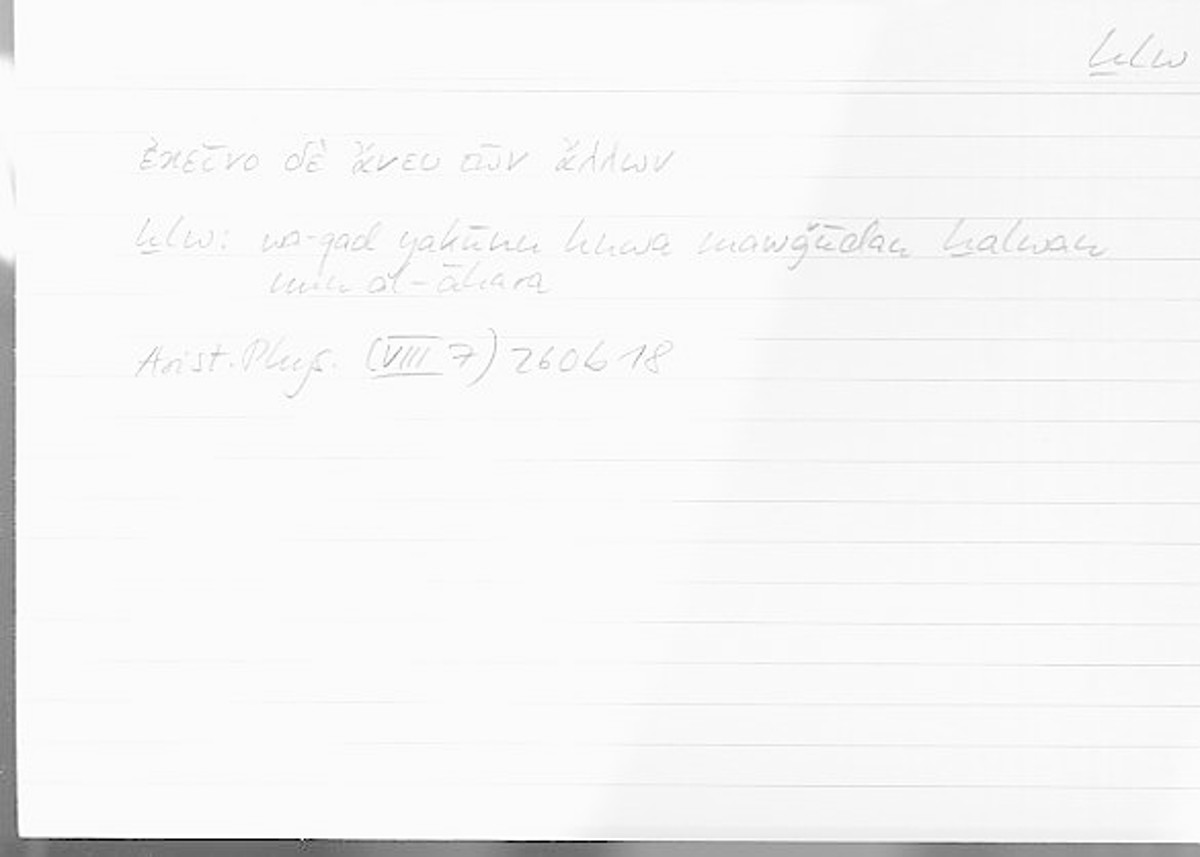 ḫlw
ἐκεῖνο δὲ ἄνευ τῶν ἄλλων
ḫlw: wa-qad yakūnu huwa mawǧūdan ḫalwan
min al-āḫara
Arist. Phys. (VIII 7) 260b18